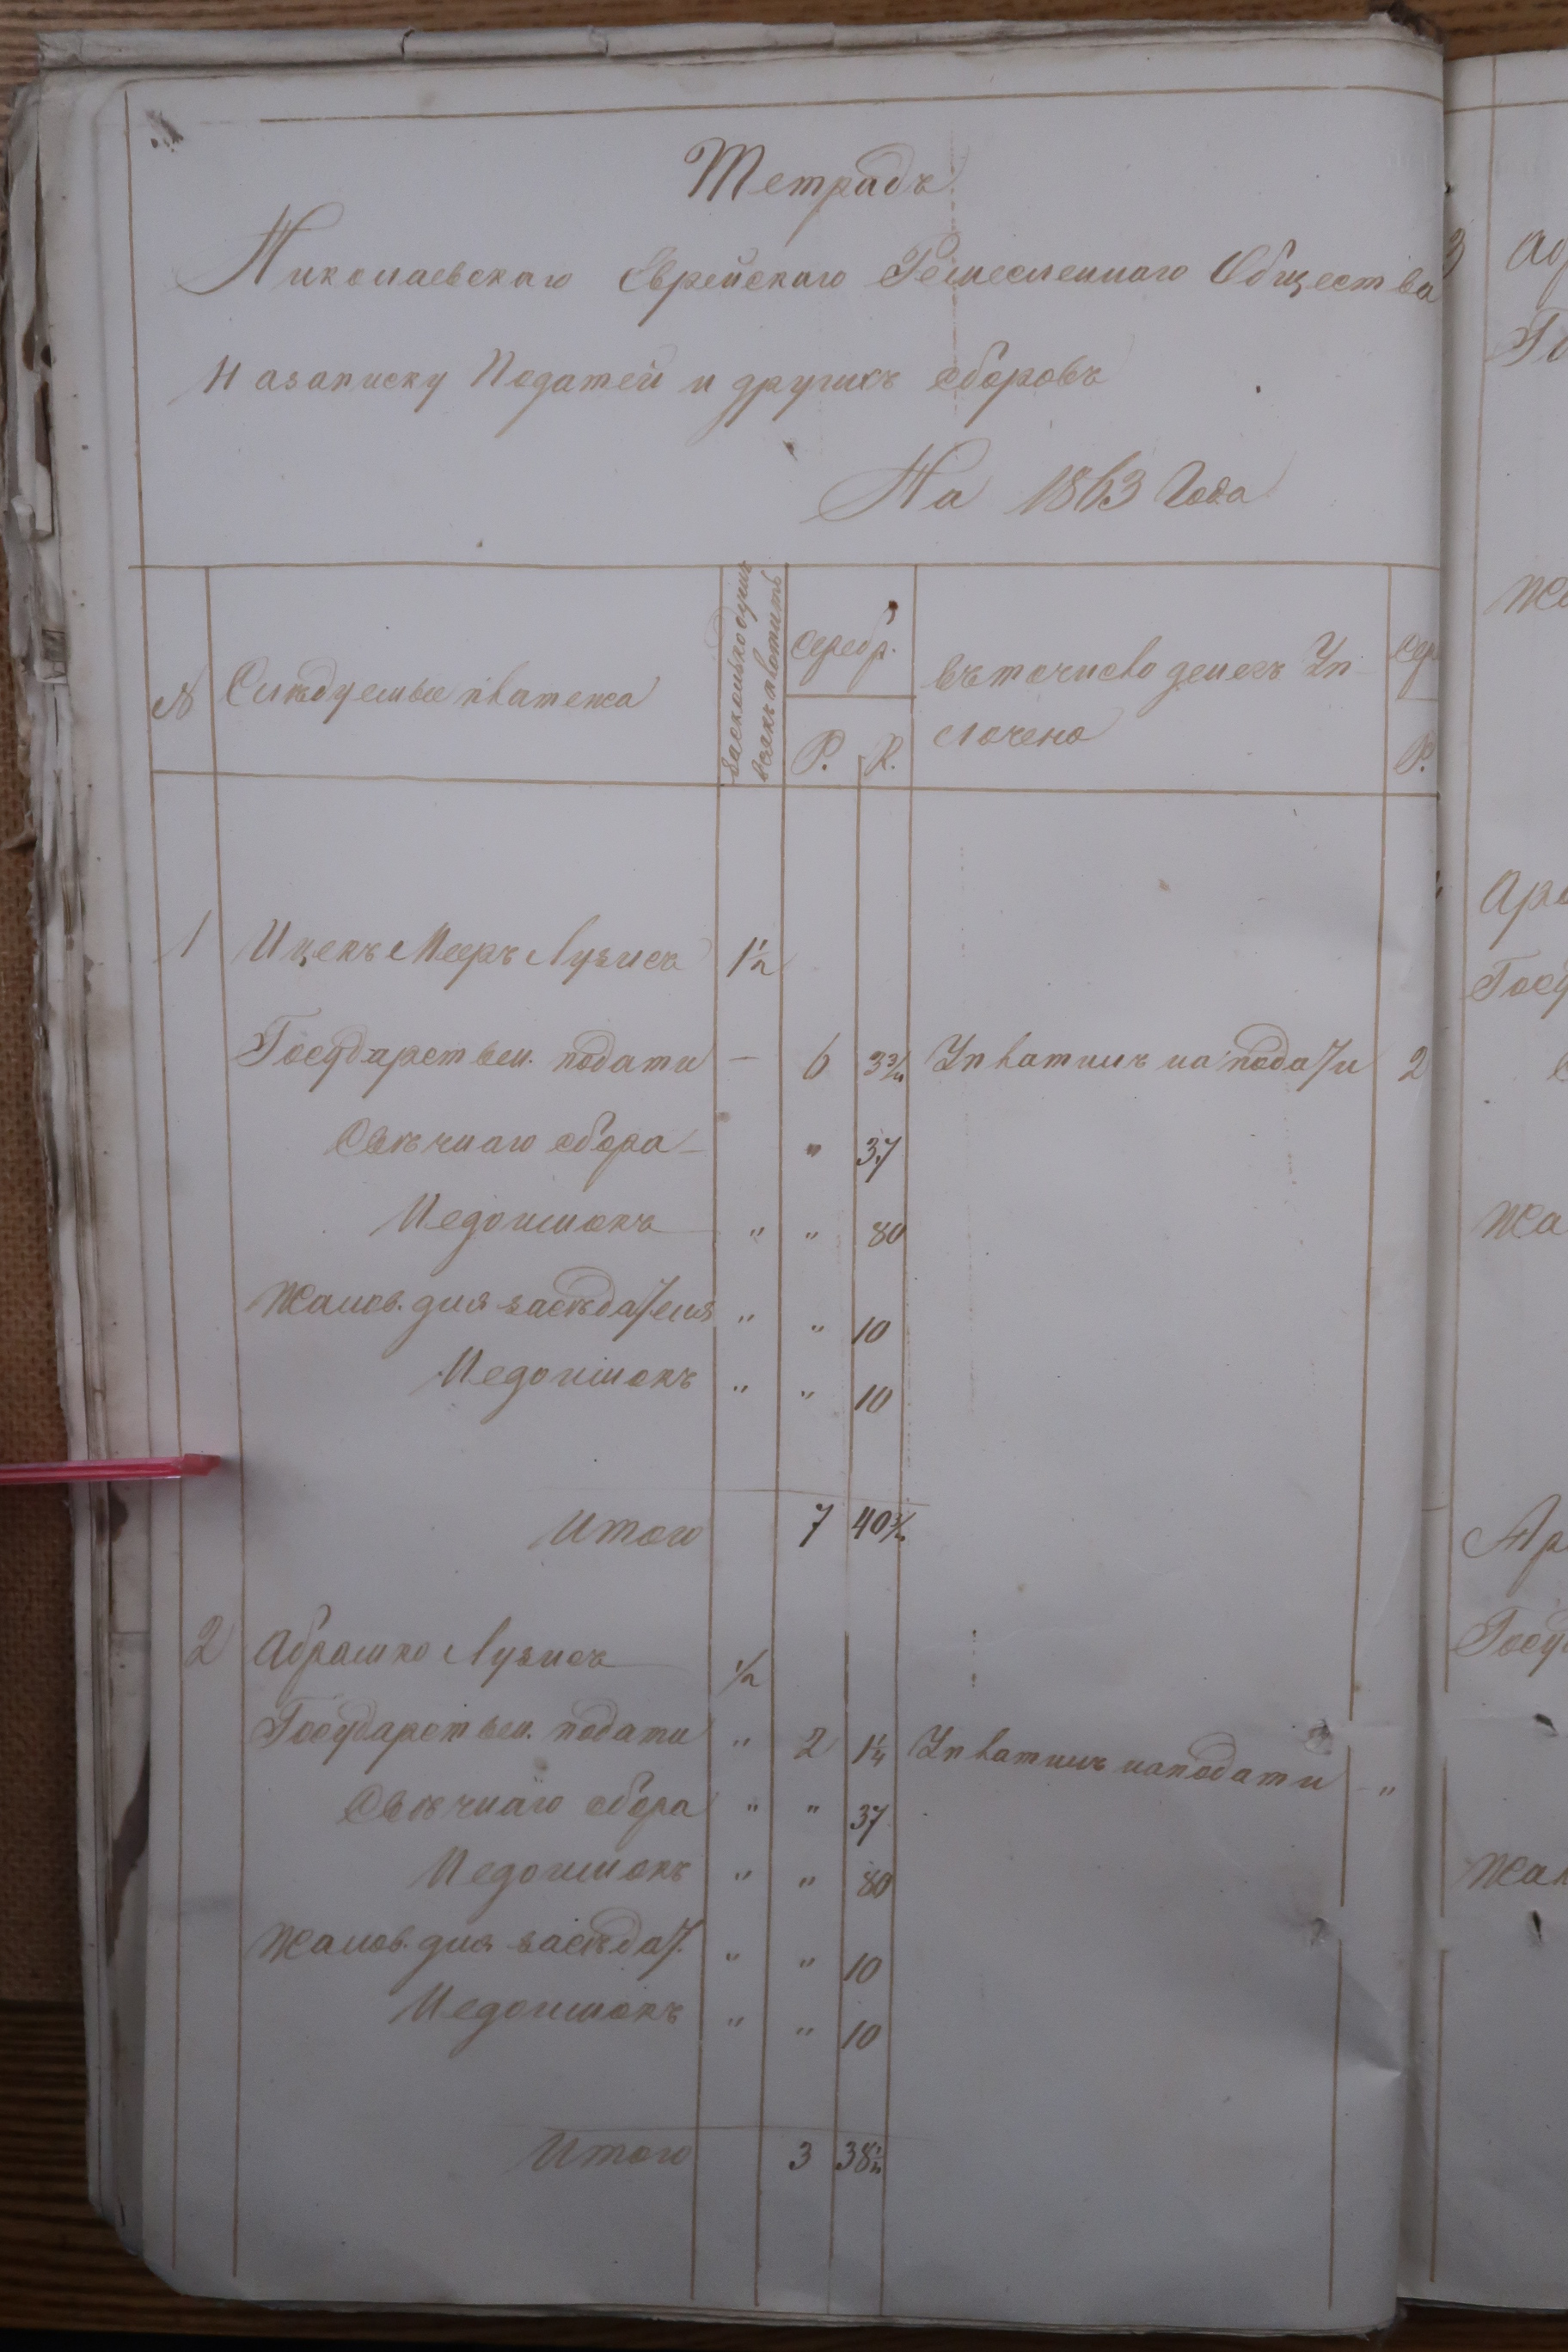 Тетрадь
Николаевскаго Еврейскаго Ремесленнаго Общества
Назаписку Податей и другихъ сборовъ
На 1863 Года
№ Слѣдуемые платежа засколькодушъ всякъ платитъ Серебр. Р. К. Въ точисло денегъ Уп-
лочено Сер Р.
1 Ицекъ Мееръ Лузисъ 1½
Государствен. подати — 6 3¾ Уплатилъ на подати 2
Свѣчнаго сбора — " 37
Недоимокъ " " 80
Жалов. для засѣдателя " " 10
Недоимокъ " " 10
Итого 7 40¾
2 Абрашко Лузисъ ½
Государствен. подати " 2 1¼ Уплатилъ наподати — "
Свѣчнаго сбора " " 37
Недоимокъ " " 80
Жалов. для засѣдат. " " 10
Недоимокъ " " 10
Итого 3 38¼
3
Го
Жа
Аро
Госу
Жа
Ар
Госуд
Жал